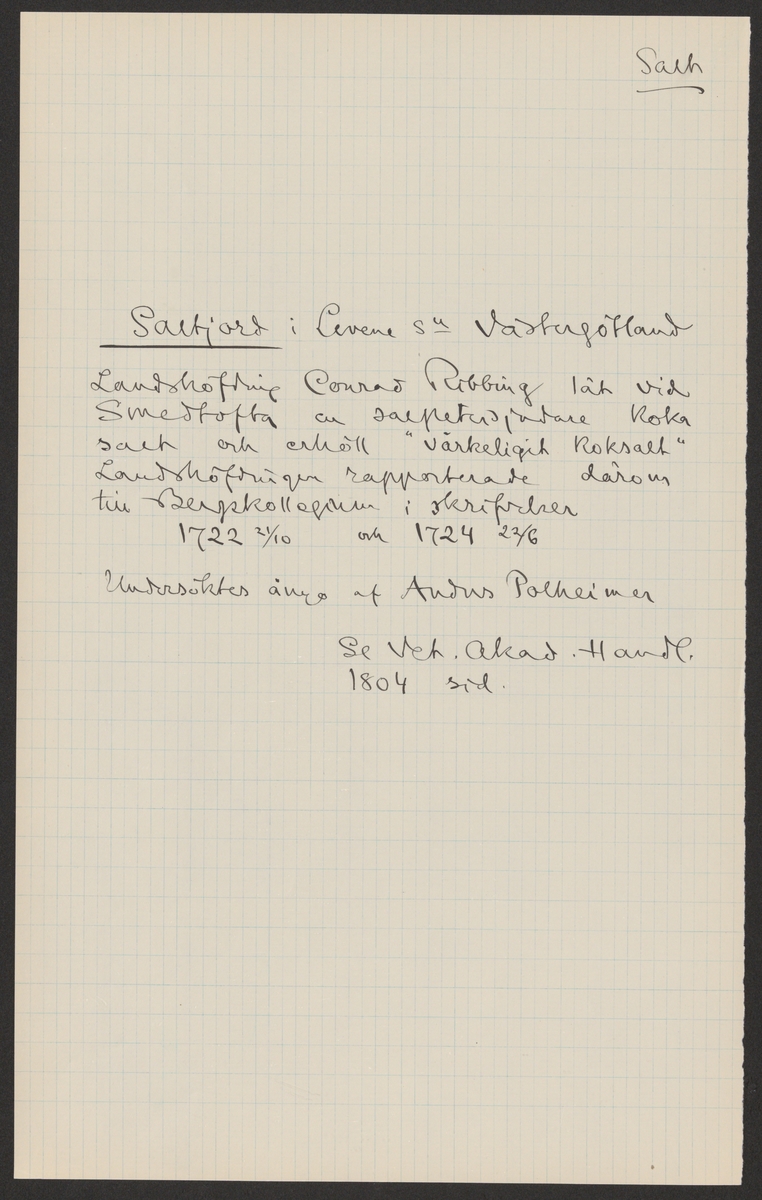 Salt
Saltjord i Levene sn Västergötland
Landshöfding Conrad Ribbing lät vid
Smedtofta en salpetersjudare koka
salt och erhöll "värkeligit koksalt"
Landshöfdingen rapporterade därom
till Bergskollegium i skrifvelser
1722 21/10 och 1724 22/6
Undersöktes änyo af Anders Polheimer
Se Vet. Akad. Handl.
1804 sid.